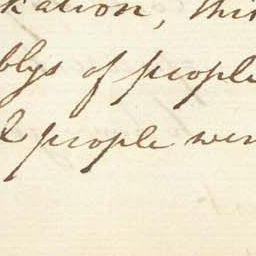 kation, this
blys of people
l people wer